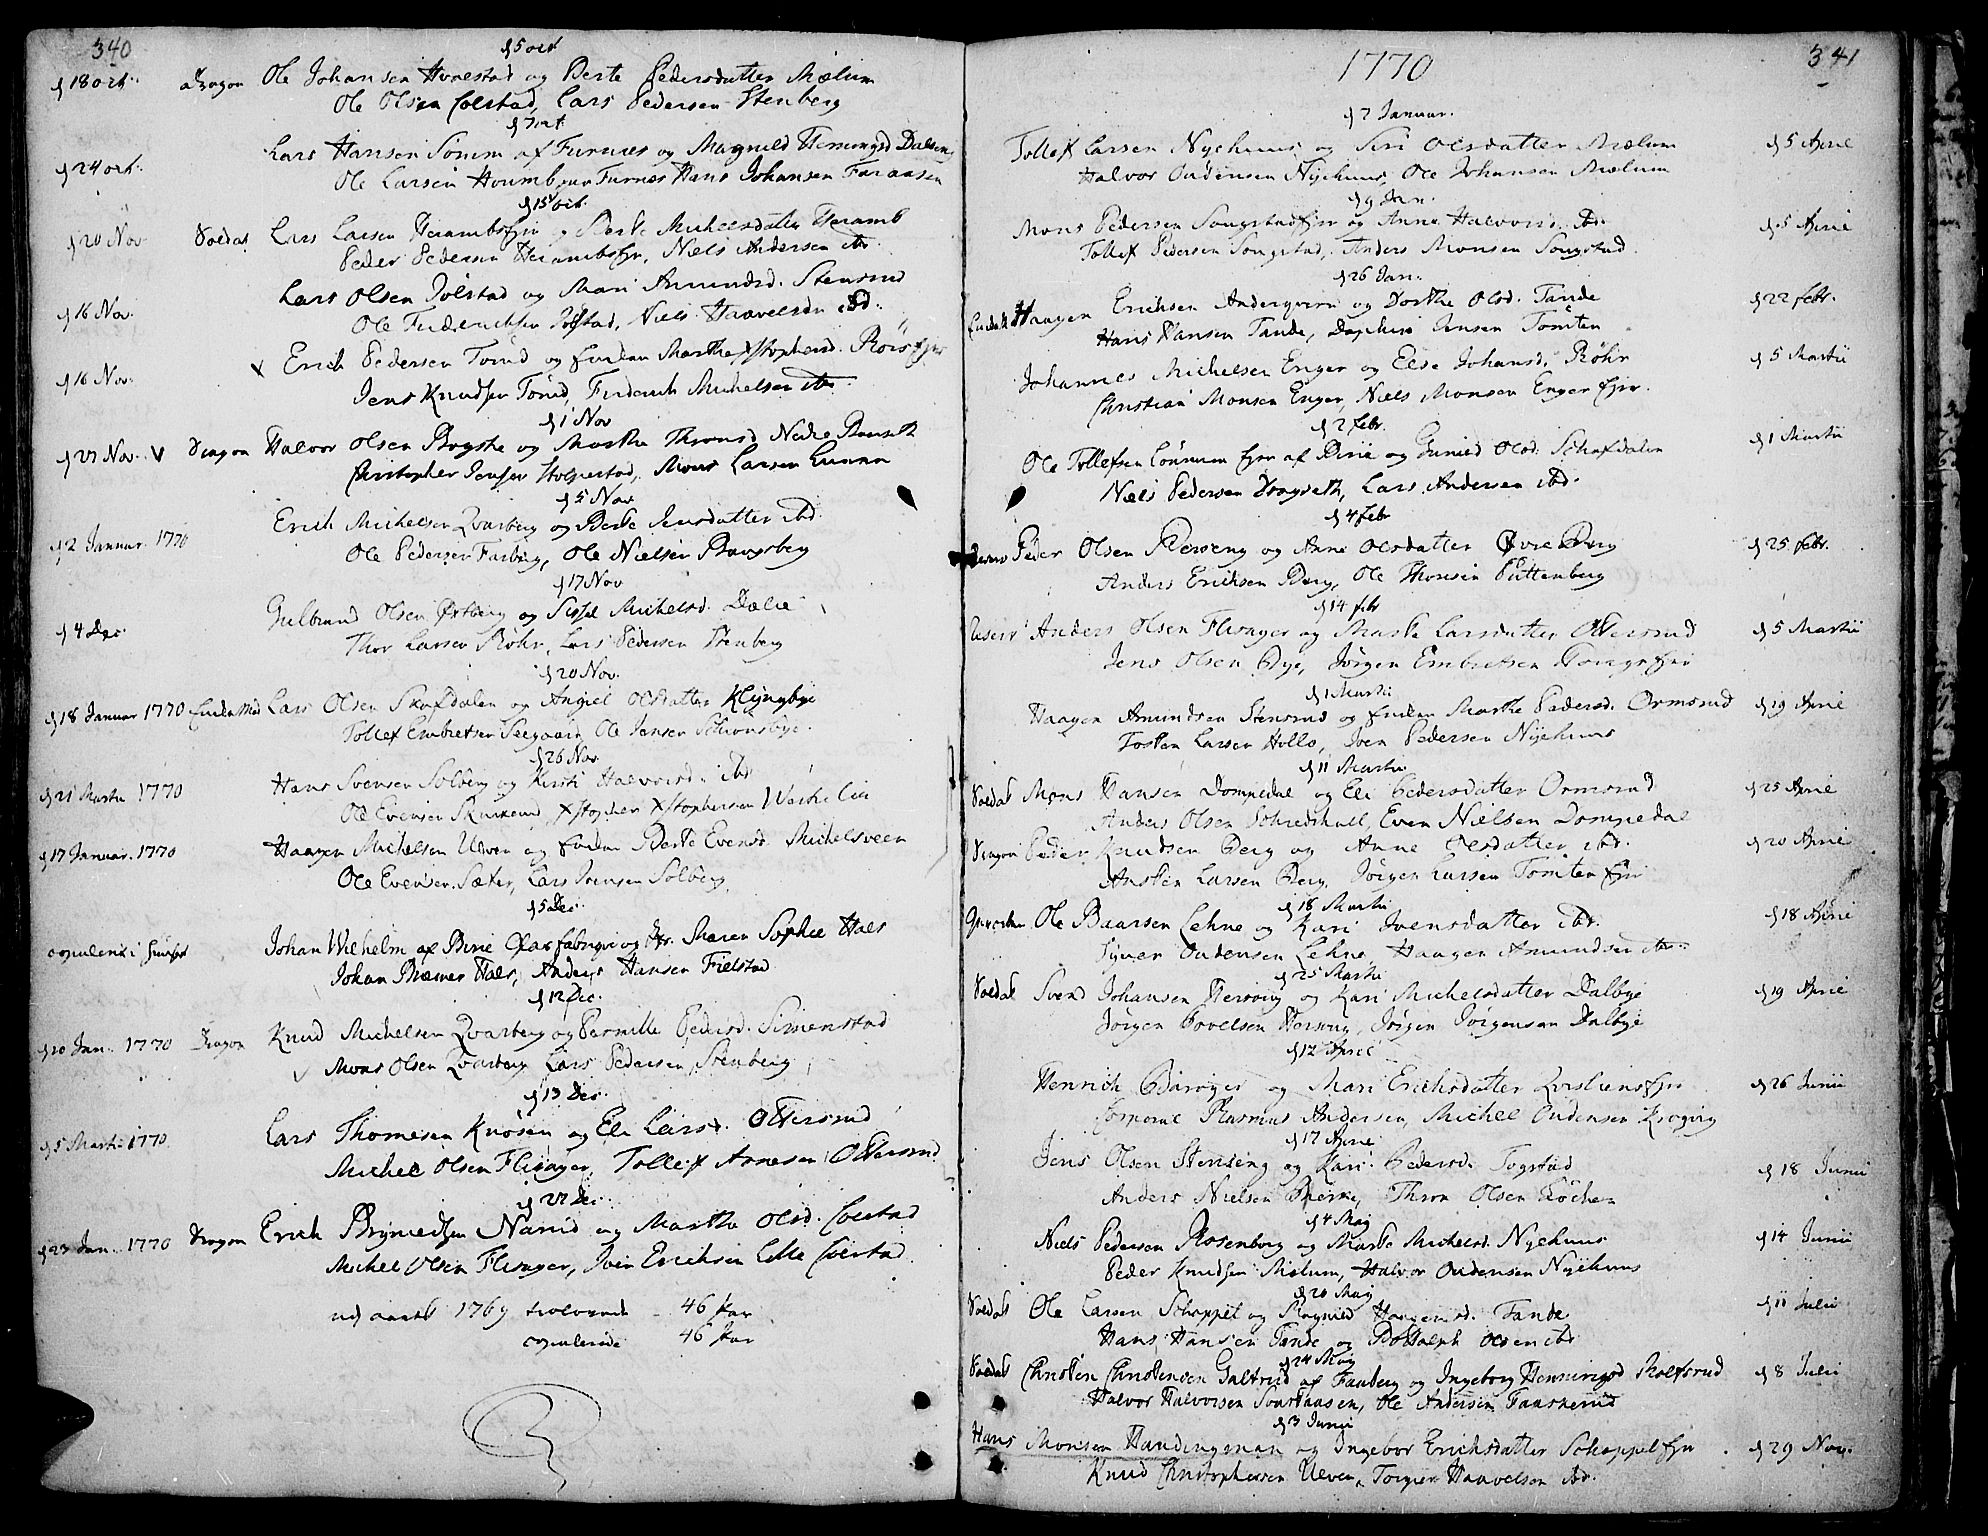 340
d 5 oct
d 18 oct. dragon Ole Johansen Hvalstad og Berte Pedersdatter Mælum
Ole Olsen Colstad, Lars Pedersen Stenberg
d 7 oct
d 24 oct. Lars Hansen Somm af Furnæs og Magnild Hemingsd Dalseng
Ole Larsen Houmb paa Furnæs Hans Johansen Faraasen
d 15 oct.
d 20 Nov. Soldat Lars Larsen Herambs og Berte Michelsdatter Heramb
Peder Pedersen Herambs, Niels Andersen ibd.
d 16 Nov. Lars Olsen Jolstad og Mari Amundsd. Stensrud
Ole Friderichsen Jolstad, Niels Haavelsen ibd.
d 16 Nov. Erich Pedersen Torud og Enken Marthe Xstophersd. Röis
Jens Knudsen Torud, Friderich Michelsen ibd.
d 1 Nov
d 27 Nov. Dragon Halvor Olsen Bryske og Marthe Thronsd Nedre
Christopher Jensen Stolpestad, Mons Larsen Lunna
d 5 Nov
d 2 Januar. 1770 Erich Michelsen Qvarberg og Berte Jensdatter ibd.
Ole Pedersen Farberg, Ole Nielsen Baugsberg
d 17 Nov
d 4 Dec. Gulbrand Olsen Østberg og Sissel Michelsd. Dælie
Thor Larsen Röhr, Lars Pedersen Stenberg
d 20 Nov.
d 18 Januar 1770 Lars Olsen Skafdalen og Angiel Olsdatter Klyngbye
Tollef Embretsen Seegaard, Ole Jensen Schionsbye.
d 26 Nov.
d 21 Martii 1770 Hans Svensen Solberg og Kirsti Halvorsd. ibd.
Ole Evensen, Xstopher Xstophersen Westre Lie
d 17 Januar. 1770 Haagen Michelsen Ulven og Enken Berte Evensd. Michelsveen
Ole Evensen Sæter, Lars Svensen Solberg
d 5 Dec.
copuleret i Johan Wilhelm af Birie og Jfr. Maren Sophie Hals
Johan Bremer Hals, Anders Hansen Fielstad
d 12 Dec.
d 10 Jan. 1770 Dragon Knud Michelsen Qvarberg og Pernille Pedersd. Simenstad
Mons Olsen Qvarberg Lars Pedersen Stenberg
d 13 Dec.
d 5 Martii 1770 Lars Thomesen Knosen og Eli Larsd. Ottersrud
Michel Olsen Flisager, Tollef Arnesen Ottersrud
d 27 Dec.
d 23 Jan. 1770 Dragon Erich Brynildsen Narud og Marthe Olsd. Colstad
Michel Olsen Flisager, Iver Erichsen Lille Colstad
ud aaret 1769 trolovede 46 Par
copulerede 46 Par
341
1770
d 7 Januar.
Tollef Larsen Nyehuus og Siri Olsdatter Mælum d 5 April
Halvor Oudensen Nyehuus, Ole Johansen Mælum
d 9 Jan.
Mons Pedersen Songstad og Anne Halvorsd. ibd. d 5 April
Tollef Pedersen Songstad, Anders Monsen Songstad
d 26 Jan.
Haagen Erichsen Anderqvern og Dorthe Olsd. Tande d 22 febr.
Hans Hansen Tande, Jensen Tomten
Johannes Michelsen Enger og Else Johansd. Røhr d 5 Martii
Christian Monsen Enger, Niels Monsen Enger
d 2 febr.
Ole Tollefsen Lönnum af Birie og Gunild Olsd. Schafdalen d 1 Martii
Niels Pedersen Dragseth, Lars Andersen ibd.
d 4 febr
Peder Olsen Berseng og Anne Olsdatter Øvre Berg d 25 febr.
Anders Erichsen Berg, Ole Thorsen Puttenberg
d 14 febr
Reserv Anders Olsen Flisager og Marte Larsdatter Ottersrud d 5 Martii
Jens Olsen Bye, Jörgen Embretsen
d 1 Martii
Haagen Amundsen Stensrud og Enken Marthe Pedersd. Ormsrud d 19 April
Tosten Larsen Hollo, Iver Pedersen Nyehuus
d 11 Martii
Soldat Mons Hansen Dompedal og Eli Pedersdatter Ormsrud d 25 April
Anders Olsen Schredshall, Even Nielsen Dompedal
Dragon Peder Knudsen Berg og Anne Olsdatter ibd. d 20 April
Ansten Larsen Berg, Jörgen Larsen Tomten
d 18 Martii
Ole Baarsen Lehne og Kari Ivensdatter ibd. d 18 April
Syver Oudensen Lehne, Haagen Amundsen ibd.
d 25 Martii
Soldat Svend Johansen Hersoug og Kari Michelsdatter Dalbye d 19 April
Jörgen Povelsen Hersoug, Jörgen Jörgensen Dalbye
d 12 April
Henrich Baröger og Mari Erichsdatter d 26 Junii
Corporal Rasmus Andersen, Michel Oudensen Krogvig
d 17 April
Jens Olsen Stenseng og Kari Pedersd. Togstad d 18 Junii
Anders Nielsen Bierke, Thron Olsen
d 4 Maj
Niels Pedersen Rosenborg og Marte Michelsd. Nyehuus d 14 Junii
Peder Knudsen Mælum, Halvor Oudensen Nyehuus
d 20 Maj
Soldat Ole Larsen Schappel og Magnild Haagensd. Tande d 11 Julii
Hans Hansen Tande og Olsen ibd
d 24 Maj
Soldat Christen Christensen Galtrud af Faaberg og Ingeborg Henningsd Rolfsrud d 8 Julii
Halvor Halvorsen Svartaasen, Ole Andersen Faaskerud
d 3 Junii
Hans Monsen Handingman og Ingebor Erichsdatter Schappel d 29 Nov.
Knud Christophersen Ulven, Torgier Haavelsen ibd.